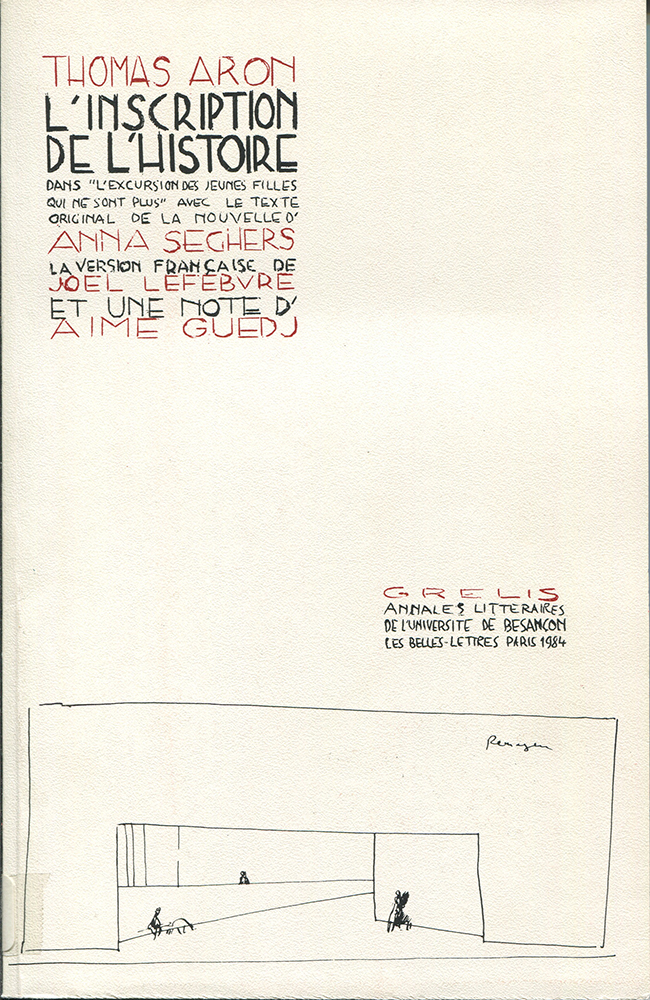 THOMAS ARON
L'INSCRIPTION
DE L'HISTOIRE
DANS "L'EXCURSION DES JEUNES FILLES
QUI NE SONT PLUS" AVEC LE TEXTE
ORIGINAL DE LA NOUVELLE D'
ANNA SEGHERS
LA VERSION FRANÇAISE DE
JOEL LEFEBVRE
ET UNE NOTE D'
AIME GUEDJ
GRELIS
ANNALES LITTERAIRES
DE L'UNIVERSITE DE BESANCON
LES BELLES-LETTRES PARIS 1984